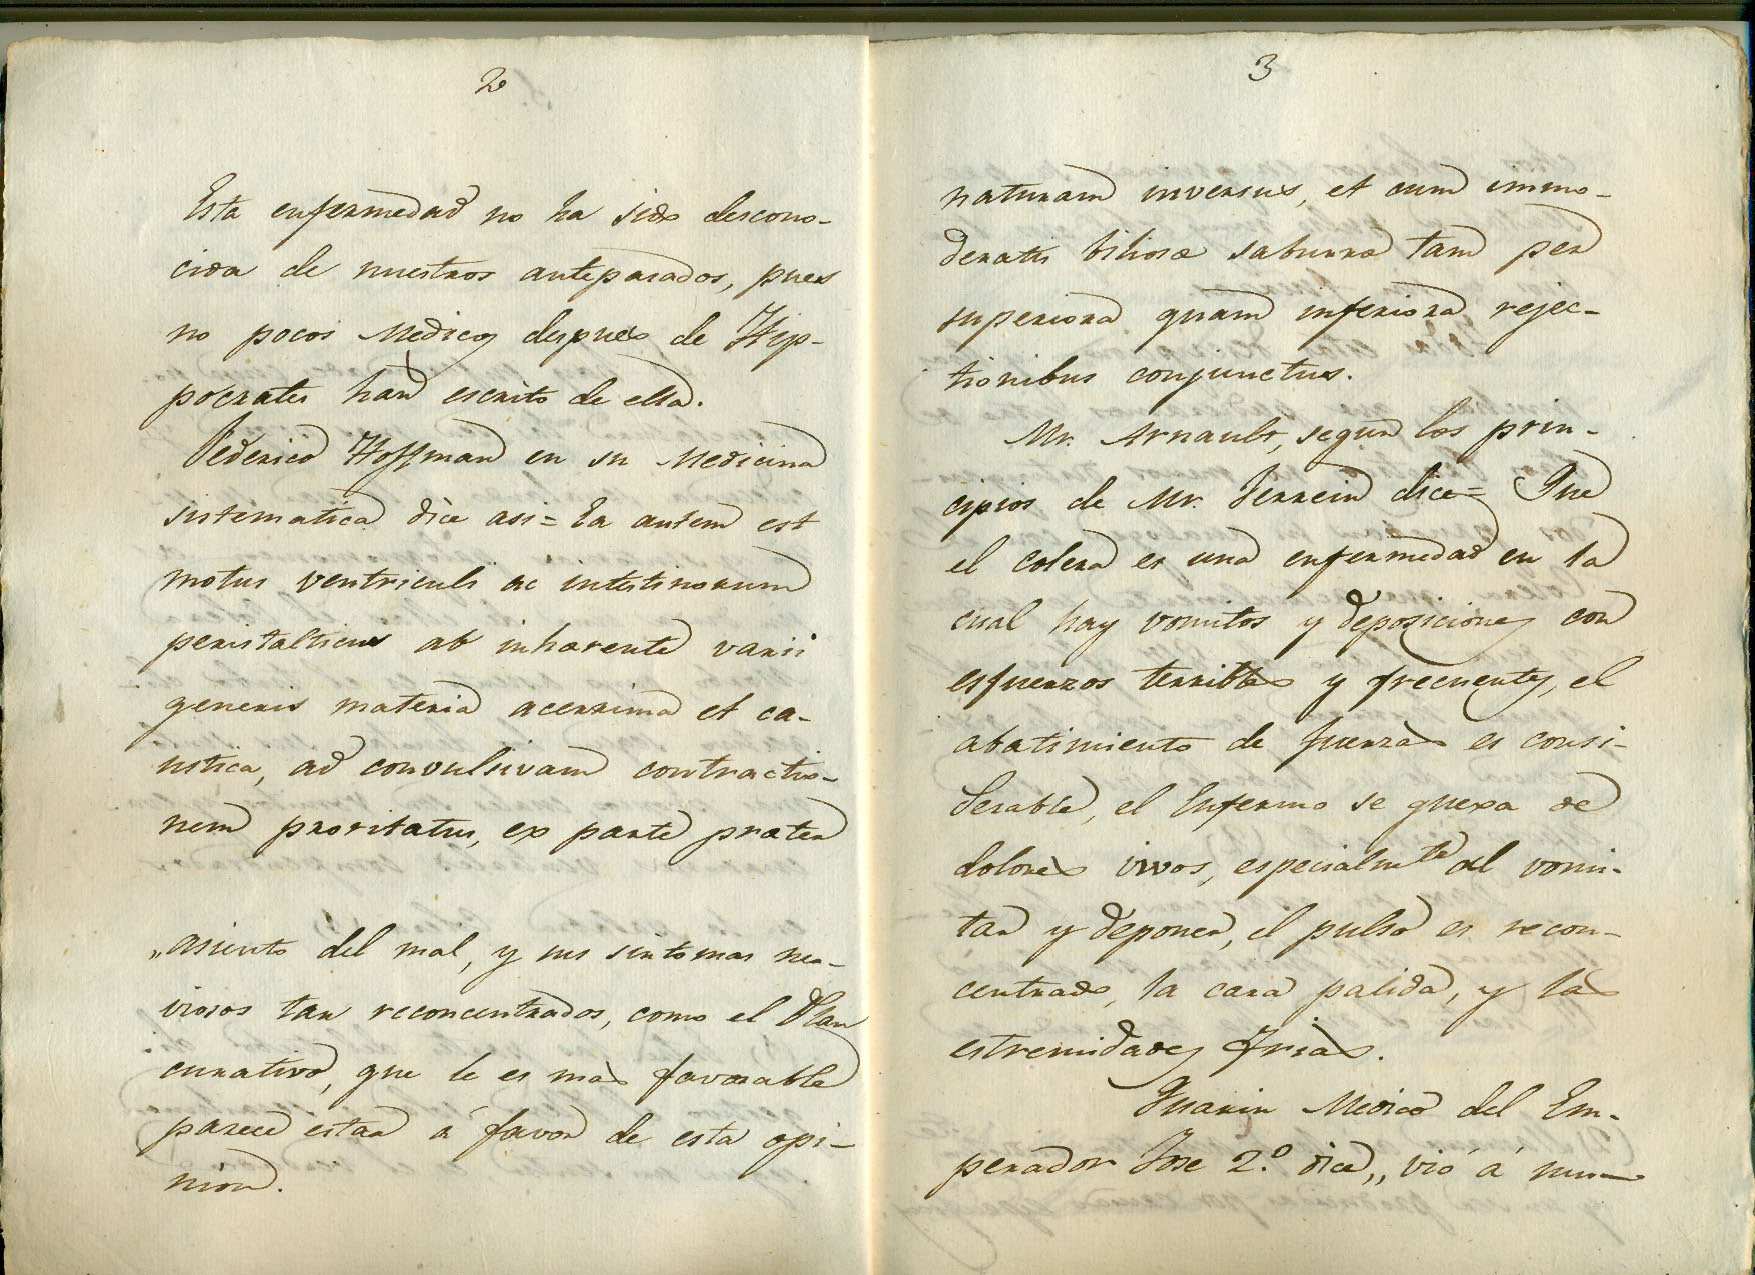 2
Esta enfermedad no ha sido descono-
cida de nuestros antepasados, pues
no pocos Medicos despues de Hip-
pocrates han escrito de ella.
Federico Hoffman en su Medicina
sistematica dice asi= Ea autem est
motus ventriculi ac intestinorum
peristalticus ab inhærente varii
generis materia acerrima et ca-
ustica, ad convulsivam contractio-
nem proritatus, ex parte præter
„asiento del mal, y sus sintomas ner-
viosos tan reconcentrados, como el Plan
curativo, que le es mas favorable
parece estar á favor de esta opi-
nion.
3
naturam inversus, et cum immo-
deratis biliosæ saburræ tam per
superiora quam inferiora rejec-
tionibus conjunctus.
Mr. Arnault, segun los prin-
cipios de Mr. Ferrein dice= Que
el colera es una enfermedad en la
cual hay vomitos y deposiciones con
esfuerzos terribles y frecuentes, el
abatimiento de fuerzas es consi-
derable, el Enfermo se quexa de
dolores vivos, especialmte al vomi-
tar y deponer, el pulso es recon-
centrado, la cara palida, y las
estremidades frias.
Quarin Medico del Em-
perador Jose 2.º dice „ vió á mu-